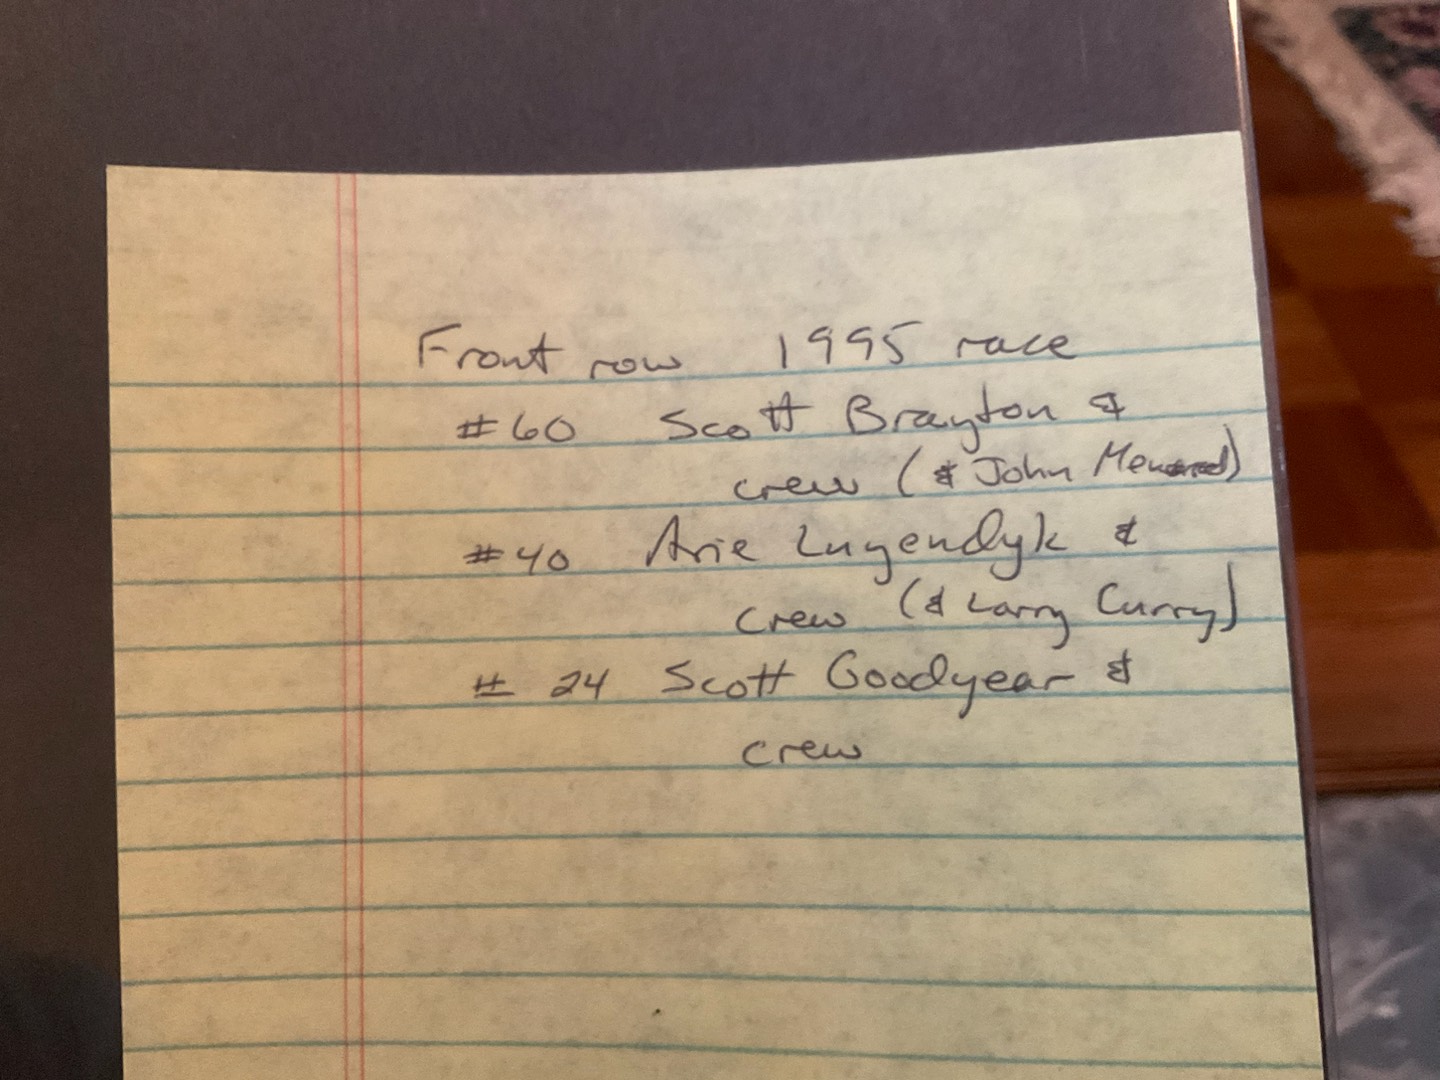 Front row 1995 race
#60 Scott Brayton &
crew (& John Menard)
#40 Arie Luyendyk &
crew (& Larry Curry)
# 24 Scott Goodyear &
crew